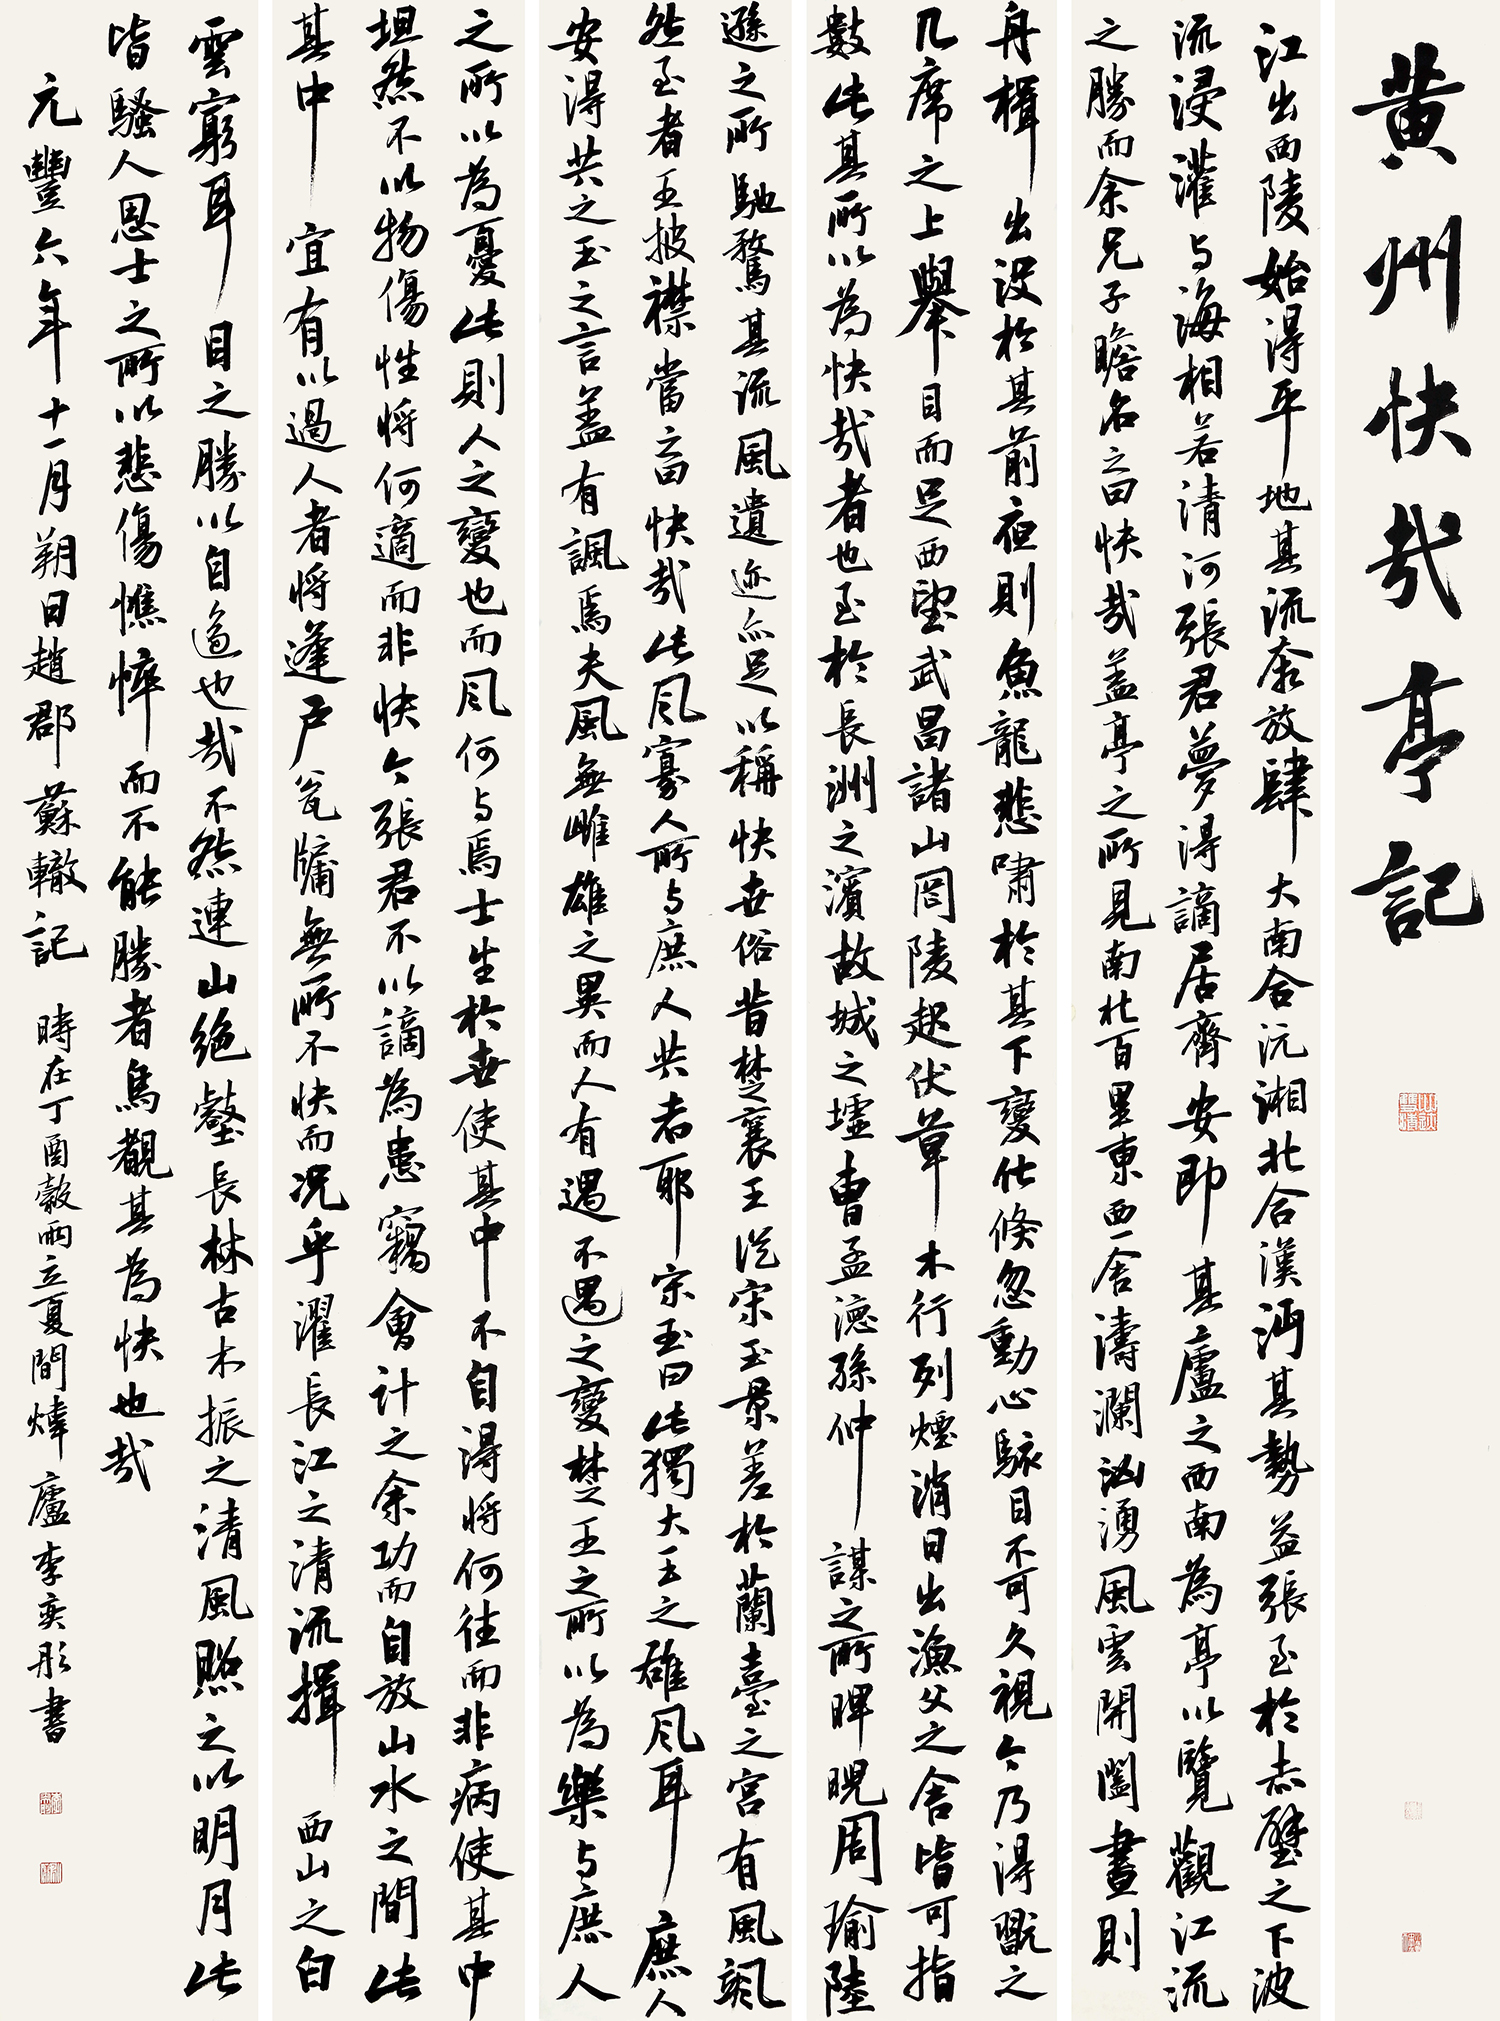 黄州快哉亭記
江出西陵始得平地其流奔放肆大南合沅湘北合漢沔其勢益張至於赤壁之下波
流浸灌与海相若清河張君夢得謫居齊安即其廬之西南為亭以覽觀江流
之勝而余兄子瞻名之曰快哉盖亭之所見南北百里東西一舍濤瀾洶湧風雲開闔晝則
舟楫出没於其前夜則魚龍悲嘯於其下變化倏忽動心駭目不可久視今乃得翫之
几席之上舉目而足西望武昌諸山岡陵起伏草木行列煙消日出漁父之舍皆可指
數此其所以為快哉者也至於長洲之濱故城之墟曹孟德孫仲謀之所睥睨周瑜陸
遜之所馳騖其流風遺迹亦足以稱快世俗昔楚襄王從宋玉景差於蘭臺之宫有風颯
然至者王披襟當之曰快哉此風寡人所与庶人共者耶宋玉曰此獨大王之雄風耳庶人
安得共之玉之言盖有諷焉夫風無雌雄之異而人有遇不遇之變楚王之所以為樂与庶人
之所以為憂此則人之變也而風何与焉士生於世使其中不自得将何往而非病使其中
坦然不以物傷性将何適而非快今張君不以謫為患竊會計之余功而自放山水之間此
其中宜有以過人者将蓬户瓮牖無所不快而况乎濯長江之清流揖西山之白
雲窮耳目之勝以自適也哉不然連山绝壑長林古木振之清風照之以明月此
皆騷人思士之所以悲傷憔悴而不能勝者烏覩其為快也哉
元豐六年十一月朔日趙郡蘇轍記 時在丁酉穀雨立夏間煒廬李奕彤書